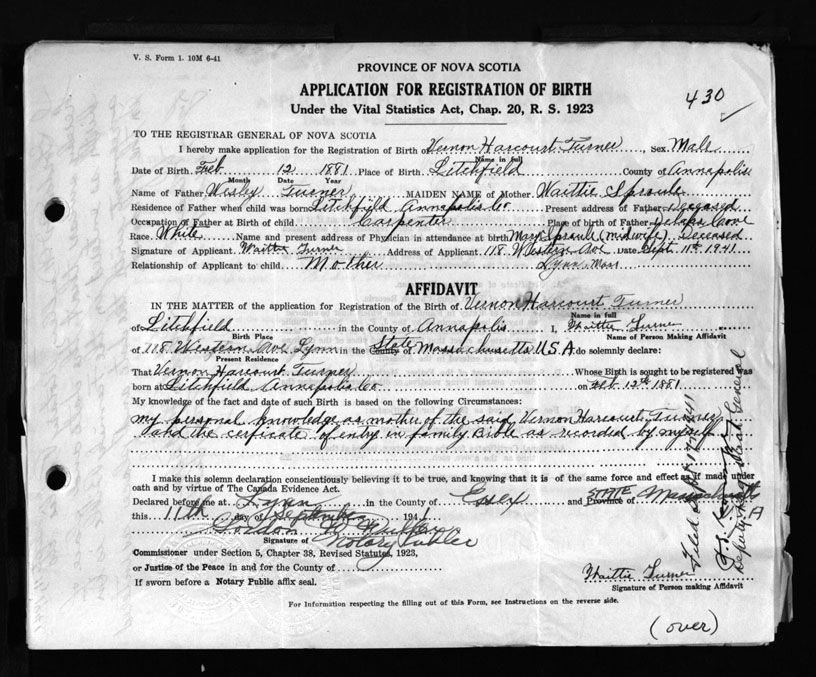 V. S. Form 1. 10M 6-41
PROVINCE OF NOVA SCOTIA
APPLICATION FOR REGISTRATION OF BIRTH
Under the Vital Statistics Act, Chap. 20, R. S. 1923
430
TO THE REGISTRAR GENERAL OF NOVA SCOTIA
I hereby make application for the Registration of Birth of Vernon Harcourt Turner, Sex Male
Name in full
Date of Birth Feb 12 1881 Place of Birth Litchfield County of Annapolis
Month Date Year
Name of Father Wesley Turner MAIDEN NAME of Mother Waittie Sproule
Residence of Father when child was born Litchfield Annapolis Co Present address of Father Deceased
Occupation of Father at Birth of child Carpenter Place of birth of Father Delaps Cove
Race White Name and present address of Physician in attendance at birth Mary Sproule (midwife) Deceased
Signature of Applicant Waittie Turner Address of Applicant 118 Western Ave Date Sept. 11th 1941
Relationship of Applicant to child Mother Lynn Mass
AFFIDAVIT
IN THE MATTER of the application for Registration of the Birth of Vernon Harcourt Turner
Name in full
of Litchfield in the County of Annapolis I, Waittie Turner
Birth Place Name of Person Making Affidavit
of 118 Western Ave Lynn in the County State of Massachusetts U.S.A. do solemnly declare:
Present Residence
That Vernon Harcourt Turner Whose Birth is sought to be registered was
born at Litchfield Annapolis Co on Feb 12th 1881
My knowledge of the fact and date of such Birth is based on the following Circumstances:
my personal knowledge as mother of the said Vernon Harcourt Turner
and the cerficate of entry in family Bible as recorded by myself
I make this solemn declaration conscientiously believing it to be true, and knowing that it is of the same force and effect as if made under
oath and by virtue of The Canada Evidence Act.
Declared before me at Lynn in the County of Essex and Province STATE of Massachusetts
this 11th day of September 1941 U.S.A
Gordon
Signature of Notary Public
Commissioner under Section 5, Chapter 38, Revised Statutes, 1923,
or Justice of the Peace in and for the County of
If sworn before a Notary Public affix seal.
Waittie Turner
Signature of Person making Affidavit
For Information respecting the filling out of this Form, see Instructions on the reverse side.
(over)
Filed Sept 17th 1941
Deputy Registrar General